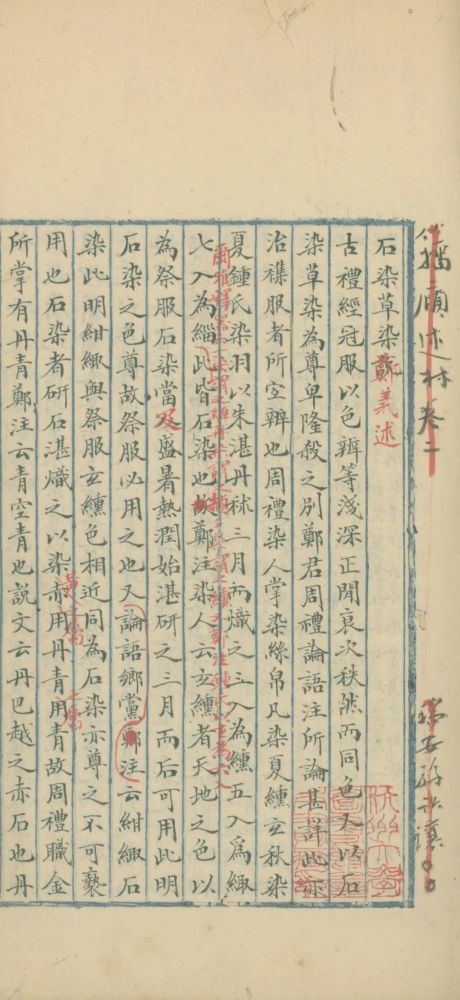 籀廎述林卷二
瑞安孫詒讓
石染草染鄭義述
古禮經冠服以色辨等淺深正閒衰次秩然而同色又以石
染草染為尊卑隆殺之別鄭君周禮論語注所論甚詳此亦
治禮服者所宜辨也周禮染人掌染絲帛凡染夏纁玄秋染
夏鍾氏染羽以朱湛丹秫三月而熾之三入為纁五入為緅
七入為緇此皆石染也故鄭注染人云玄纁者天地之色以
為祭服石染當及盛暑熱潤始湛研之三月而后可用此明
石染之色尊故祭服必用之也又論語鄉黨鄭注云紺緅石
染此明紺緅與祭服玄纁色相近同為石染亦尊之不可褻
用也石染者研石湛熾之以染赤用丹青用青故周禮職金
所掌有丹青鄭注云青空青也說文云丹巴越之赤石也丹